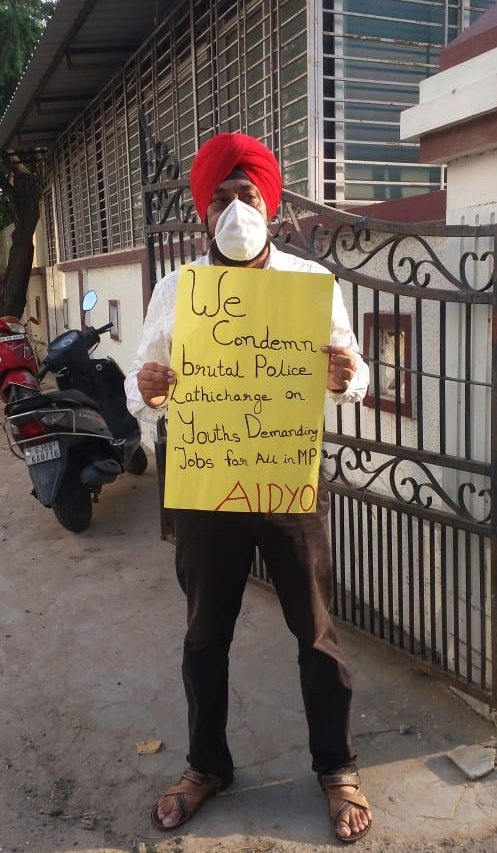 We
Condemn
brutal Police
Lathicharge on
Youths Demanding
Jobs for All in MP
AIDYO